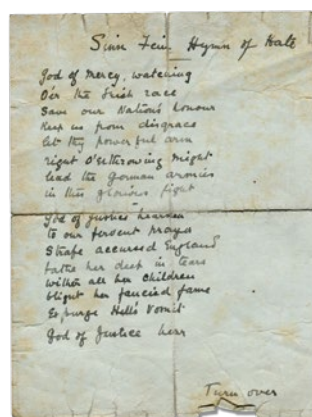 Sinn Fein Hymn of Hate
God of Mercy, watching
O'er the Irish race
Save our Nation's honour
Keep us from disgrace
let thy powerful arm
right O'erthrowing might
lead the German armies
in this glorious fight
God of Justice hearken
to our fervent prayer
Strafe accursed England
bathe her deep in tears
Wither all her children
blight her fancied fame
Expurge Hell's Vomit
God of Justice hear
Turn over